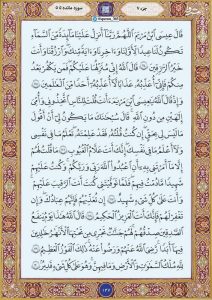 جزء ۷
سورة مائده ۵
قَالَ عِيسَى ابْنُ مَرْيَمَ اللَّهُمَّ رَبَّنَا أَنزِلْ عَلَيْنَا مَائِدَةً مِّنَ السَّمَاءِ
تَكُونُ لَنَا عِيدًا لِّأَوَّلِنَا وَءَاخِرِنَا وَءَايَةً مِّنكَ وَارْزُقْنَا وَأَنتَ
خَيْرُ الرَّٰزِقِينَ ١١٤ قَالَ اللَّهُ إِنِّي مُنَزِّلُهَا عَلَيْكُمْ فَمَن يَكْفُرْ بَعْدُ
مِنكُمْ فَإِنِّي أُعَذِّبُهُ عَذَابًا لَّا أُعَذِّبُهُ أَحَدًا مِّنَ الْعَٰلَمِينَ ١١٥
وَإِذْ قَالَ اللَّهُ يَٰعِيسَى ابْنَ مَرْيَمَ ءَأَنتَ قُلْتَ لِلنَّاسِ اتَّخِذُونِي وَأُمِّيَ
إِلَٰهَيْنِ مِن دُونِ اللَّهِ قَالَ سُبْحَٰنَكَ مَا يَكُونُ لِي أَنْ أَقُولَ
مَا لَيْسَ لِي بِحَقٍّ إِن كُنتُ قُلْتُهُ فَقَدْ عَلِمْتَهُ تَعْلَمُ مَا فِي نَفْسِي
وَلَا أَعْلَمُ مَا فِي نَفْسِكَ إِنَّكَ أَنتَ عَلَّٰمُ الْغُيُوبِ ١١٦ مَا قُلْتُ لَهُمْ
إِلَّا مَا أَمَرْتَنِي بِهِ أَنِ اعْبُدُوا اللَّهَ رَبِّي وَرَبَّكُمْ وَكُنتُ عَلَيْهِمْ
شَهِيدًا مَّا دُمْتُ فِيهِمْ فَلَمَّا تَوَفَّيْتَنِي كُنتَ أَنتَ الرَّقِيبَ عَلَيْهِمْ
وَأَنتَ عَلَىٰ كُلِّ شَيْءٍ شَهِيدٌ ١١٧ إِن تُعَذِّبْهُمْ فَإِنَّهُمْ عِبَادُكَ وَإِن
تَغْفِرْ لَهُمْ فَإِنَّكَ أَنتَ الْعَزِيزُ الْحَكِيمُ ١١٨ قَالَ اللَّهُ هَٰذَا يَوْمُ يَنفَعُ
الصَّٰدِقِينَ صِدْقُهُمْ لَهُمْ جَنَّٰتٌ تَجْرِي مِن تَحْتِهَا الْأَنْهَٰرُ خَٰلِدِينَ
فِيهَا أَبَدًا رَّضِيَ اللَّهُ عَنْهُمْ وَرَضُوا عَنْهُ ذَٰلِكَ الْفَوْزُ الْعَظِيمُ ١١٩
لِلَّهِ مُلْكُ السَّمَٰوَٰتِ وَالْأَرْضِ وَمَا فِيهِنَّ وَهُوَ عَلَىٰ كُلِّ شَيْءٍ قَدِيرٌ ١٢٠
١٢٧